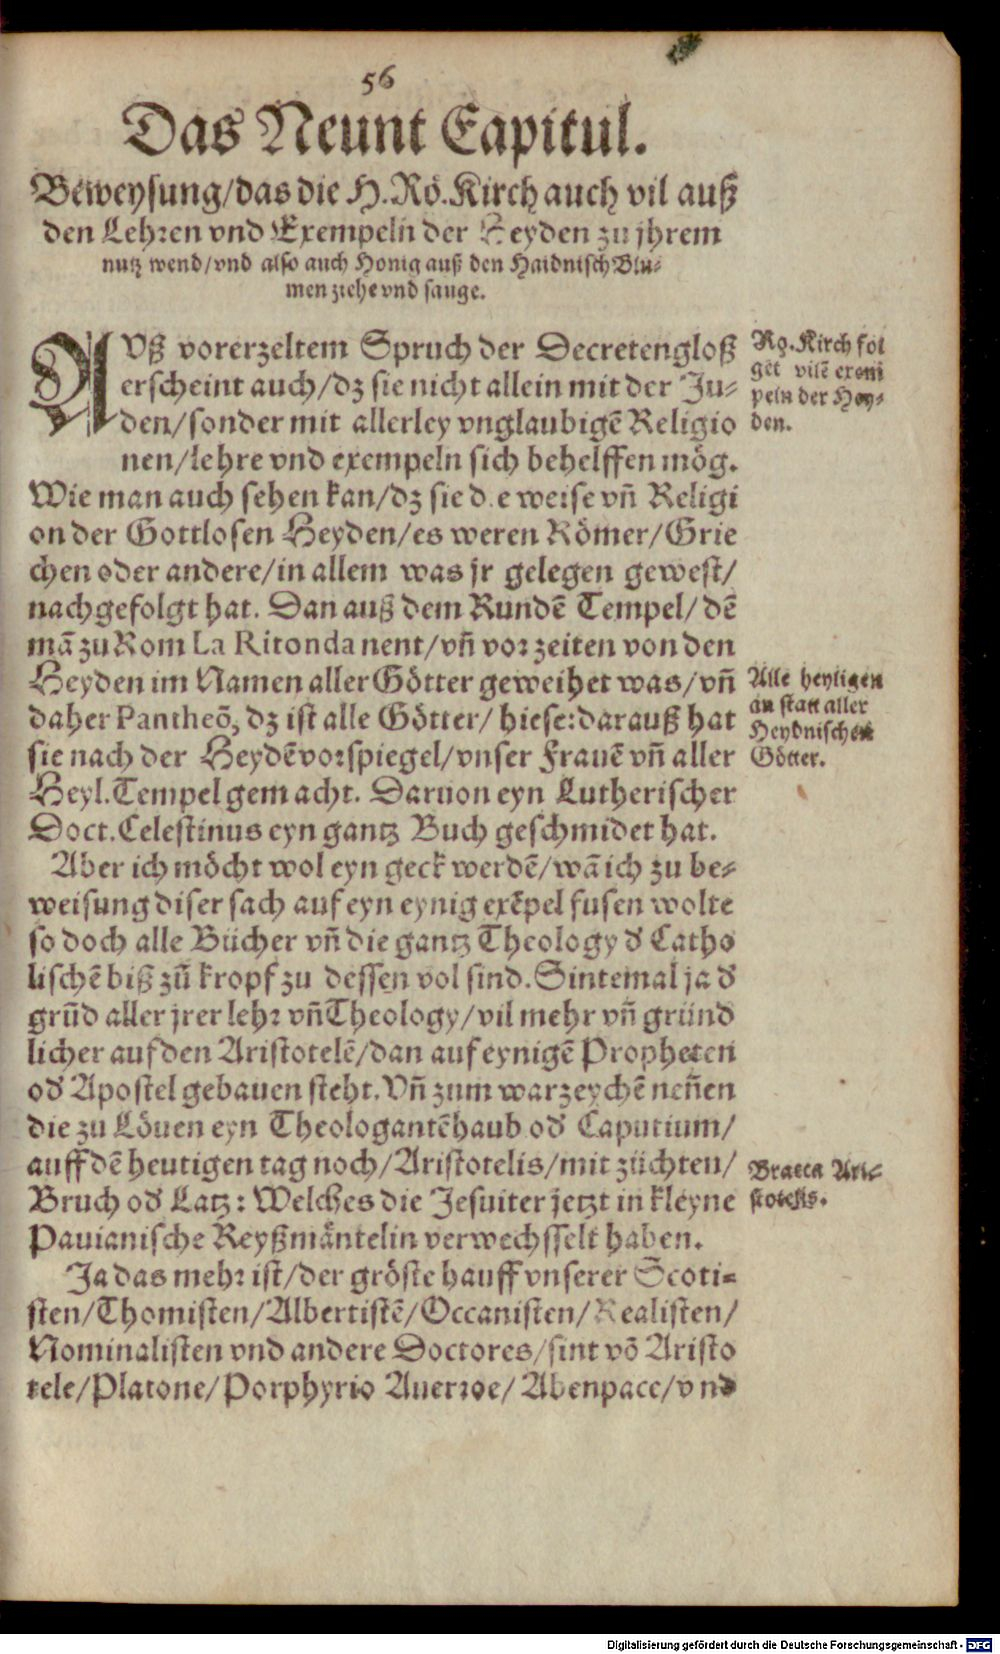 56
Das Neunt Capitul.
Beweysung/das die H. Rö. Kirch auch vil auß
den Lehren vnd Exempeln der Heyden zu jhrem
nutz wend/vnd also auch Honig auß den Haidnisch Blu-
men ziehe vnd sauge.
AVß vorerzeltem Spruch der Decretengloß
erscheint auch/dz sie nicht allein mit der Ju-
den/sonder mit allerley vnglaubigē Religio
nen/lehre vnd exempeln sich behelffen mög.
Wie man auch sehen kan/dz sie die weise vñ Religi
on der Gottlosen Heyden/es weren Römer/Grie
chen oder andere/in allem was jr gelegen gewest/
nachgefolgt hat. Dan auß dem Rundē Tempel/dē
mā zu Rom La Ritonda nent/vñ vor zeiten von den
Heyden im Namen aller Götter geweihet was/vñ
daher Pantheō, dz ist alle Götter/hiese: darauß hat
sie nach der Heydē vorspiegel/vnser Frauē vñ aller
Heyl. Tempel gemacht. Daruon eyn Lutherischer
Doct. Celestinus eyn gantz Buch geschmidet hat.
Aber ich möcht wol eyn geck werdē/wā ich zu be-
weisung diser sach auf eyn eynig exēpel fusen wolte
so doch alle Bücher vñ die gantz Theology d' Catho
lischē biß zū kropf zu dessen vol sind. Sintemal ja d'
grūd aller jrer lehr vñ Theology/vil mehr vñ gründ
licher auf den Aristotelē/dan auf eynigē Propheten
od' Apostel gebauen steht. Vñ zum warzeychē neñen
die zu Löuen eyn Theologantēhaub od' Caputium/
auff dē heutigen tag noch/Aristotelis/mit züchten/
Bruch od' Latz: Welches die Jesuiter jetzt in kleyne
Pauianische Reyßmäntelin verwechsselt haben.
Ja das mehr ist/der gröste hauff vnserer Scoti-
sten/Thomisten/Albertistē/Occanisten/Realisten/
Nominalisten vnd andere Doctores/sint vō Aristo
tele/Platone/Porphyrio Auerroe/Abenpace/vnd
Rö. Kirch fol
get vilē exem
peln der Hey-
den.
Alle heyligen
an statt aller
Heydnischen
Götter.
Bracca Ari-
stotelis.
Digitalisierung gefördert durch die Deutsche Forschungsgemeinschaft - DFG